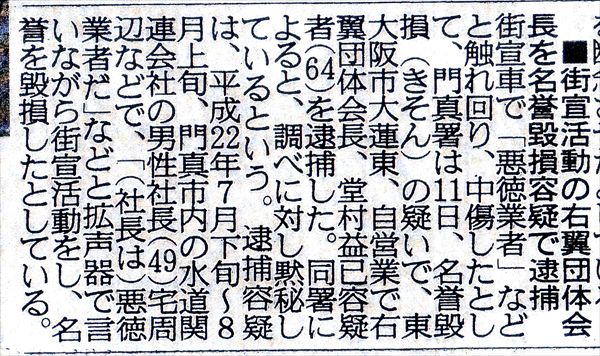 ■街宣活動の右翼団体会
長を名誉毀損容疑で逮捕
街宣車で「悪徳業者」など
と触れ回り、中傷したとし
て、門真署は11日、名誉毀
損（きそん）の疑いで、東
大阪市大蓮東、自営業で右
翼団体会長、堂村益已容疑
者（64）を逮捕した。同署に
よると、調べに対し黙秘し
ているという。逮捕容疑
は、平成22年7月下旬～8
月上旬、門真市内の水道関
連会社の男性社長（49）宅周
辺などで、「（社長は）悪徳
業者だ」などと拡声器で言
いながら街宣活動をし、名
誉を毀損したとしている。